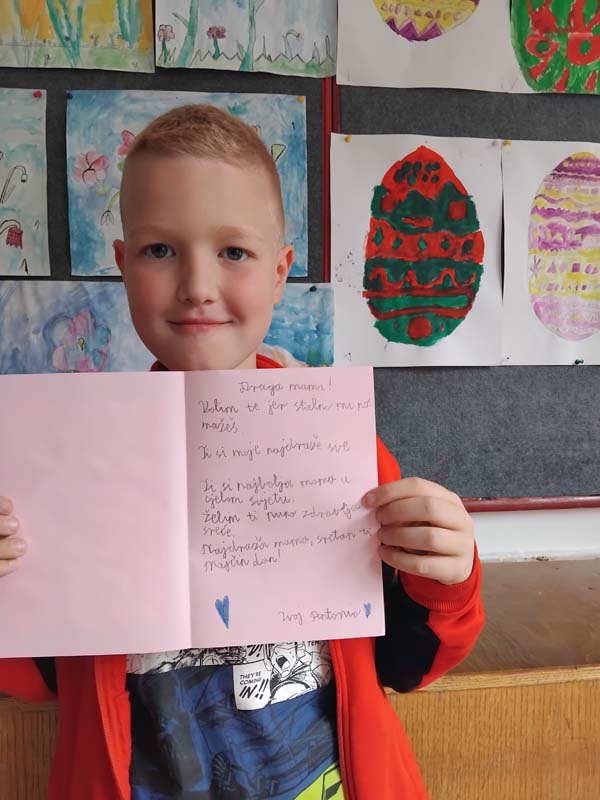 Draga mama!
Volim te jer stalno mi po
mažeš,
Ti si moje najdraže sve
Ti si najbolja mama u
cjelom svijetu.
Želim ti puno zdravlja
sreće.
Najdraža mama, sretan ti
Majčin dan!
Tvoj Antonio
THEY'RE
COMING
IN!!